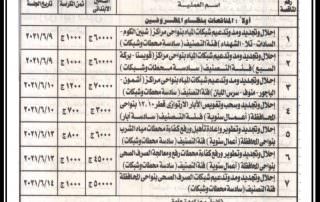 رقم المناقصة
اسم العملية
التأمين الابتدائى
ثمن الكراسة
تاريخ الجلسة
أولاً : المناقصات بنظام المظروفين
١
إحلال وتجديد ومد وتدعيم شبكات المياه بنواحى مراكز ( شبين الكوم -
السادات - تلا - الشهداء ) فئة التصنيف ( سادسة محطات وشبكات )
٦٠٠٠٠ج
١٠٠٠ج
٢٠٢١/٦/٩
٢
إحلال وتجديد ومد وتدعيم شبكات المياه بنواحى مراكز ( قويسنا - بركة
السبع ) فئة التصنيف ( سادسة محطات وشبكات )
١٠٠٠ج
٢٠٢١/٦/٩
٣
إحلال وتجديد ومد وتدعيم شبكات المياه بنواحى مراكز ( أشمون -
الباجور - منوف - سرس الليان ) فئة التصنيف ( سادسة محطات وشبكات )
١٠٠٠ج
٢٠٢١/٦/١٠
٤
إحلال وتجديد وسحب وتفويض الآبار الارتوازى قطر ١٠، ١٢ بنواحى
المحافظة ( أعمال سنوية ) ( فئة التصنيف سادسة آبار )
٧٠٠ج
٢٠٢١/٦/١٠
٥
إحلال وتجديد وتطوير وإعادة تأهيل ورفع كفاءة محطات مياه الشرب
بنواحى المحافظة ( أعمال سنوية ) فئة التصنيف ( سادسة محطات وشبكات )
٨٠٠ج
٢٠٢١/٦/١٣
٦
إحلال وتجديد وتطوير ورفع كفاءة محطات رفع ومعالجة الصرف الصحى
بنواحى المحافظة فئة التصنيف ( سادسة محطات وشبكات )
٤٥٠٠٠ج
١٠٠٠ج
٢٠٢١/٦/١٣
٧
إحلال وتجديد ومد وتدعيم شبكات الصرف الصحى بنواحى المحافظة
( فئة التصنيف سادسة محطات وشبكات )
٥٠٠٠٠ج
١٠٠٠ج
٢٠٢١/٦/١٤